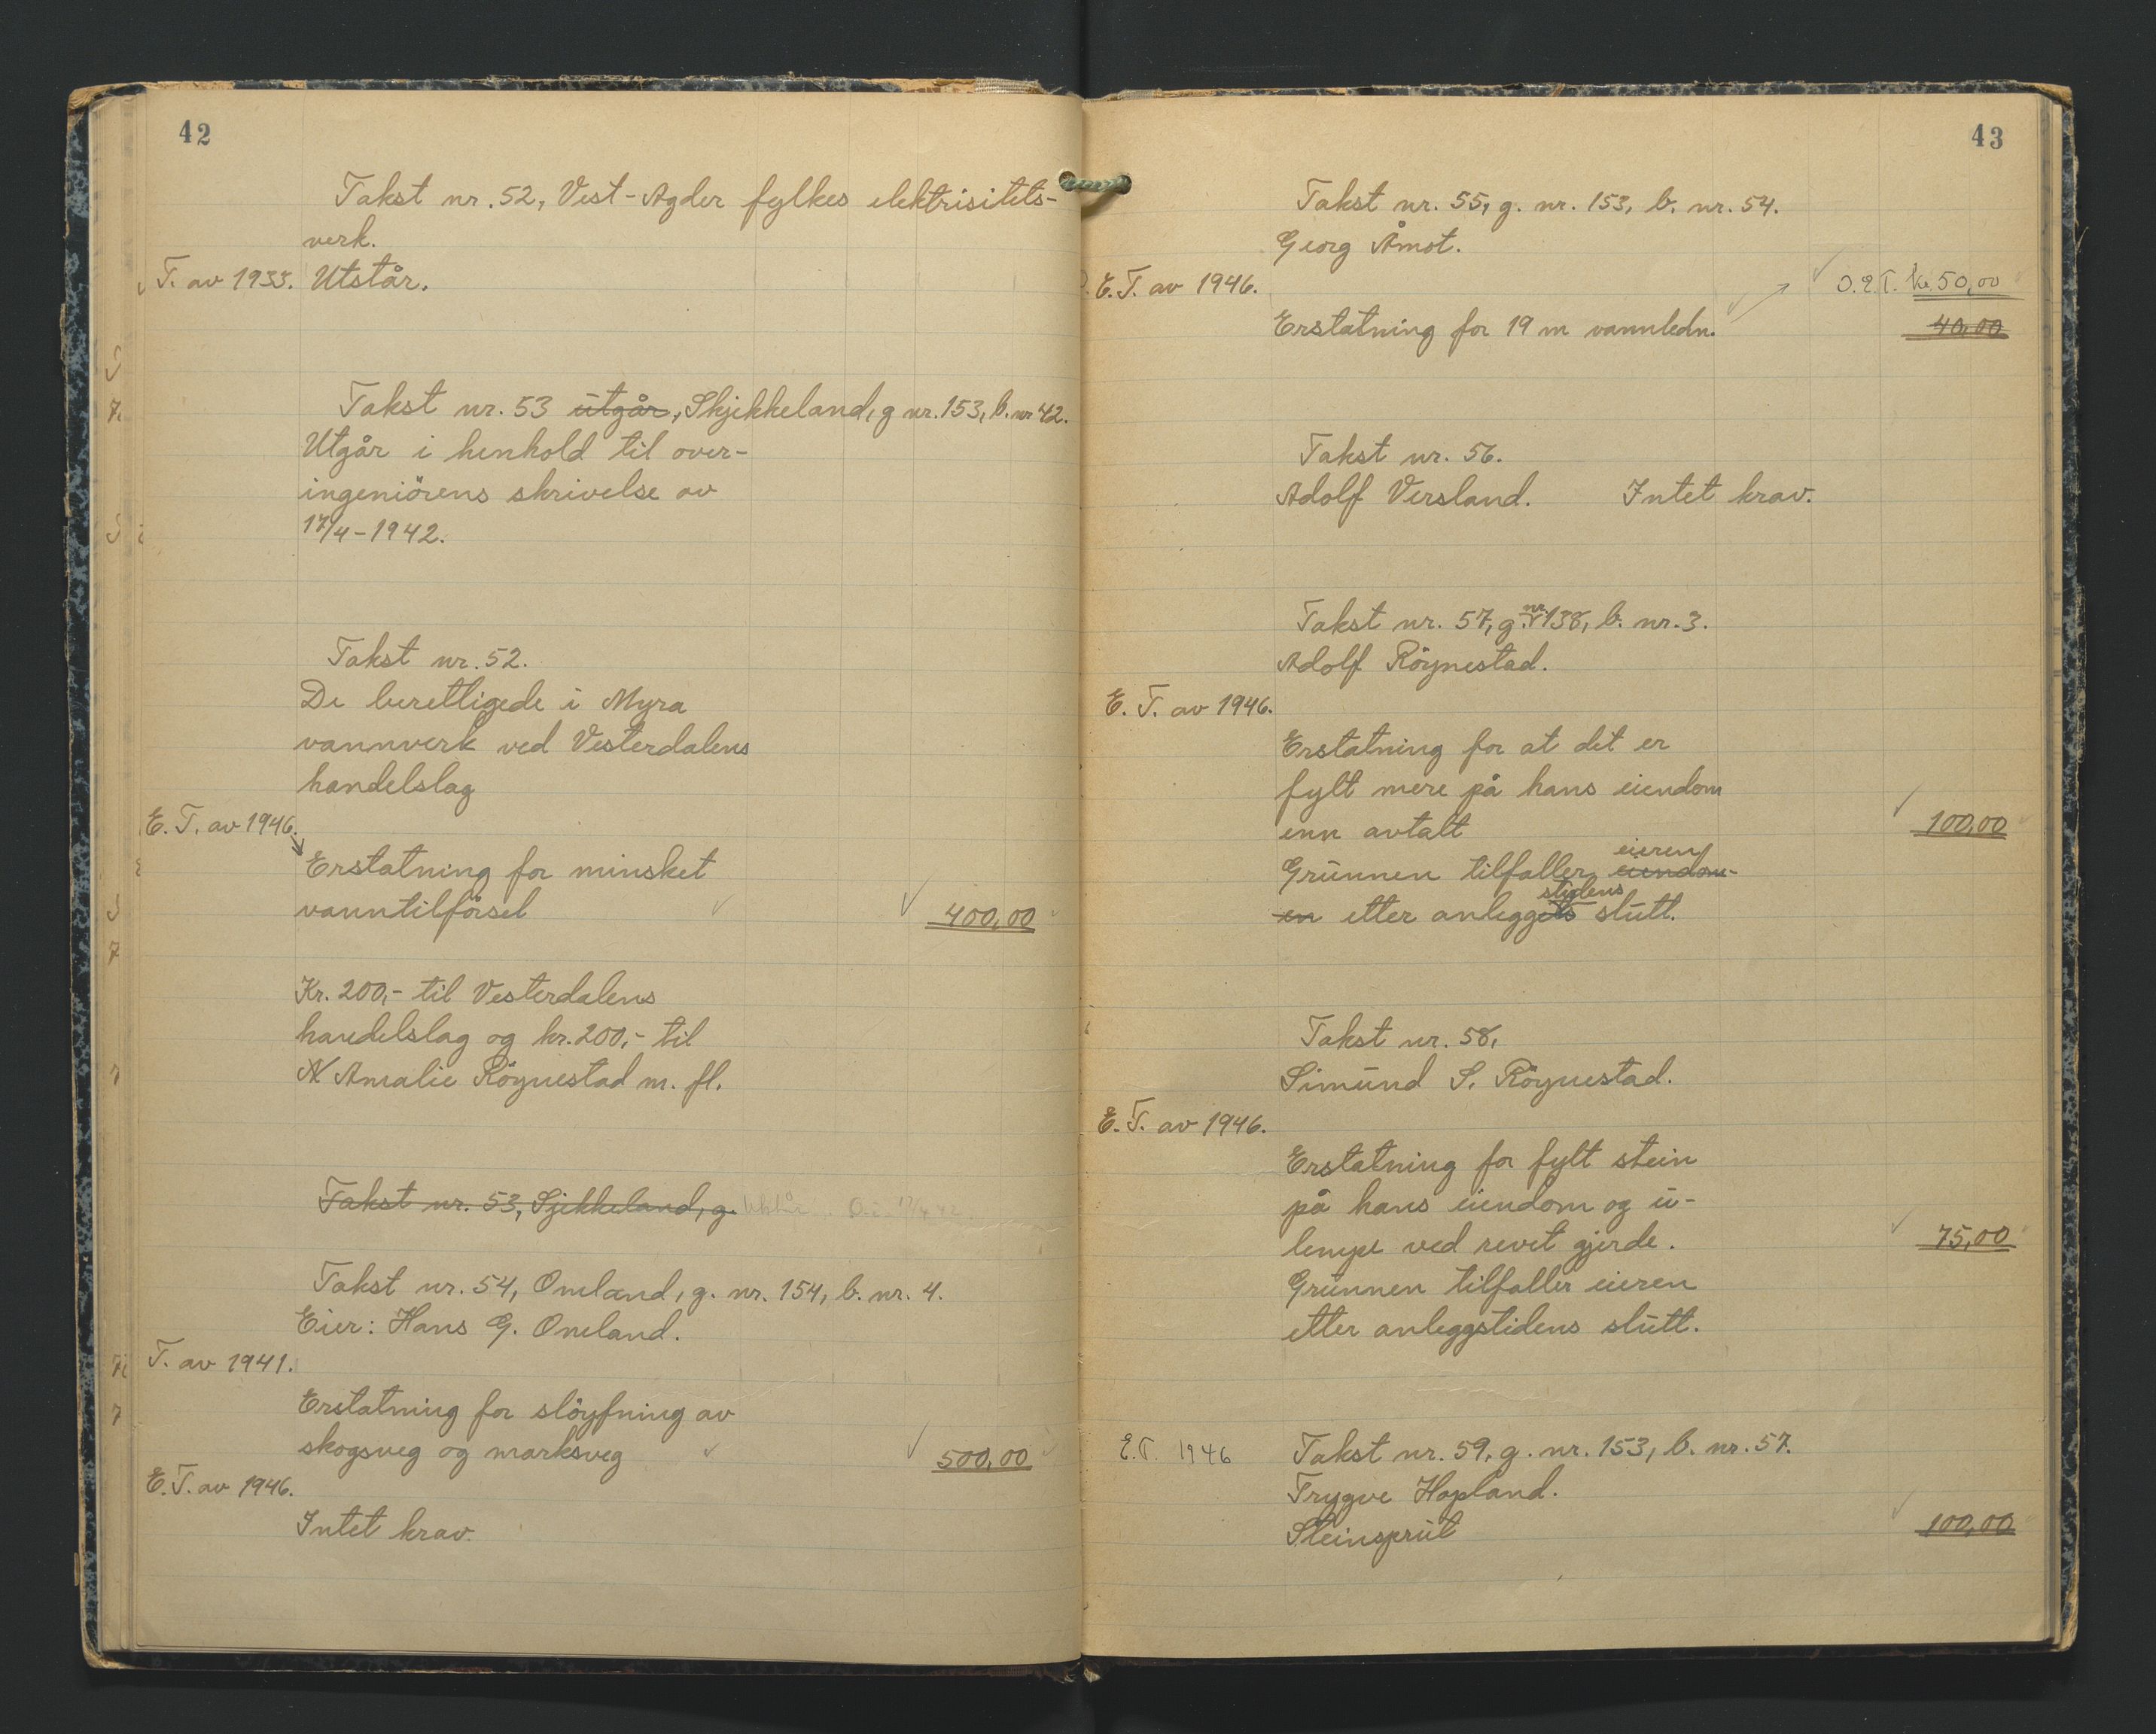 42
Takst nr. 52, Vest-Agder fylkes elektrisitets-
verk.
T. av 1935. Utstår.
Takst nr. 53 utgår, Skjekkeland, g nr. 153, b. nr 42.
Utgår i henhold til over-
ingeniörens skrivelse av
17/4-1942.
Takst nr. 52.
De berettigede i Myra
vannverk ved Vesterdalens
handelslag
E. T. av 1946.
Erstatning for minsket
vanntilförsel 400,00
Kr. 200,- til Vesterdalens
handelslag og kr. 200,- til
N Amalie Röynestad m. fl.
Takst nr. 53, Sjekkeland, g.
Takst nr. 54, Omland, g. nr. 154, b. nr. 4.
Eier: Hans G. Omland.
T. av 1941.
Erstatning for slöyfning av
skogsveg og marksveg 500,00
E. T. av 1946.
Intet krav.
43
Takst nr. 55, g. nr. 153, b. nr. 54.
Georg Åmot.
E. T. av 1946. O.E.T. kr. 50,00
Erstatning for 19 m vannledn. 40,00
Takst nr. 56.
Adolf Versland. Intet krav.
Takst nr. 57, g. nr 138, b. nr. 3.
Adolf Röynestad.
E. T. av 1946.
Erstatning for at det er
fylt mere på hans eiendom
enn avtalt 100,00
eieren
Grunnen tilfaller eiendom-
stidens
en etter anleggets slutt.
Takst nr. 58,
Simund S. Röynestad.
E. T. av 1946.
Erstatning for fylt stein
på hans eiendom og u-
lempe ved revet gjerde. 75,00
Grunnen tilfaller eieren
etter anleggstidens slutt.
E.T. 1946 Takst nr. 59, g. nr. 153, b. nr. 57.
Trygve Hopland.
Steinsprut 100,00